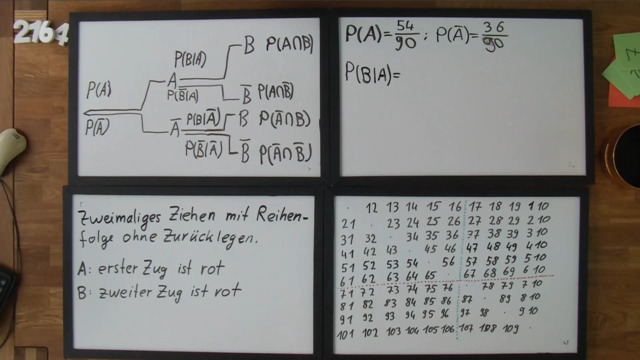 2164
P(A)
P(Ā)
P(B|A)
A
P(B̄|A)
P(B|Ā)
Ā
P(B̄|Ā)
B P(A∩B)
B̄ P(A∩B̄)
B P(Ā∩B)
B̄ P(Ā∩B̄)
P(A)=54/90 ; P(Ā)=36/90
P(B|A)=
Zweimaliges Ziehen mit Reihen-
folge ohne Zurücklegen.
A: erster Zug ist rot
B: zweiter Zug ist rot
· 12 13 14 15 16 17 18 19 1 10
21 · 23 24 25 26 27 28 29 2 10
31 32 · 34 35 36 37 38 39 3 10
41 42 43 · 45 46 47 48 49 4 10
51 52 53 54 · 56 57 58 59 5 10
61 62 63 64 65 · 67 68 69 6 10
71 72 73 74 75 76 · 78 79 7 10
81 82 83 84 85 86 87 · 89 8 10
91 92 93 94 95 96 97 98 · 9 10
101 102 103 104 105 106 107 108 109 ·